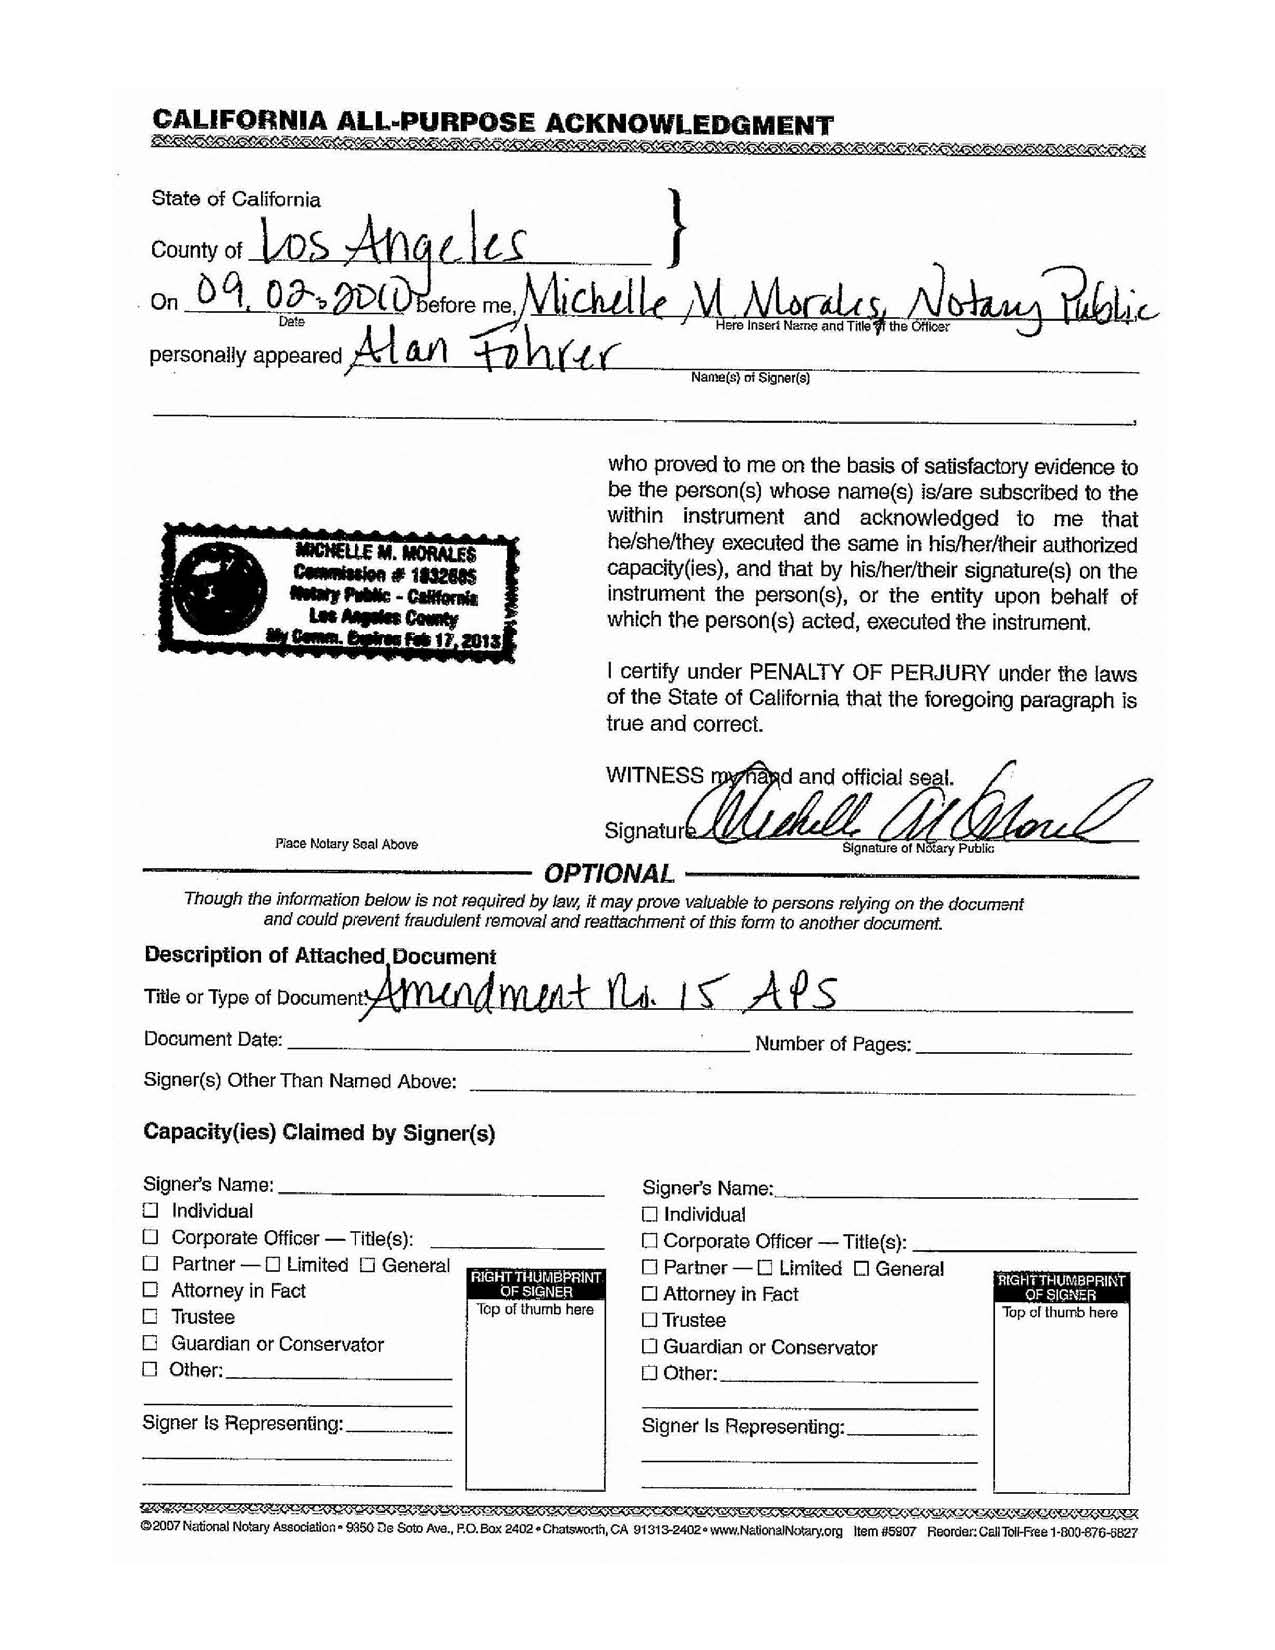 CALIFORNIA ALL-PURPOSE ACKNOWLEDGMENT
State of California
County of Los Angeles
On 09.02.2010 before me, Michelle M Morales, Notary Public
Date
Here Insert Name and Title of the Officer
personally appeared Alan Fohrer
Name(s) of Signer(s)
who proved to me on the basis of satisfactory evidence to
be the person(s) whose name(s) is/are subscribed to the
within instrument and acknowledged to me that
he/she/they executed the same in his/her/their authorized
capacity(ies), and that by his/her/their signature(s) on the
instrument the person(s), or the entity upon behalf of
which the person(s) acted, executed the instrument.
MICHELLE M. MORALES
Commission #
Notary Public - California
Los Angeles County
My Comm. Expires Feb 17, 2013
I certify under PENALTY OF PERJURY under the laws
of the State of California that the foregoing paragraph is
true and correct.
WITNESS my hand and official seal.
Signature Michelle M Morales
Place Notary Seal Above
Signature of Notary Public
OPTIONAL
Though the information below is not required by law, it may prove valuable to persons relying on the document
and could prevent fraudulent removal and reattachment of this form to another document.
Description of Attached Document
Title or Type of Document: Amendment No. 15 APS
Document Date: Number of Pages:
Signer(s) Other Than Named Above:
Capacity(ies) Claimed by Signer(s)
Signer's Name:
Individual
Corporate Officer — Title(s):
Partner — Limited General
Attorney in Fact
Trustee
Guardian or Conservator
Other:
Signer Is Representing:
RIGHT THUMBPRINT
OF SIGNER
Top of thumb here
Signer's Name:
Individual
Corporate Officer — Title(s):
Partner — Limited General
Attorney in Fact
Trustee
Guardian or Conservator
Other:
Signer Is Representing:
RIGHT THUMBPRINT
OF SIGNER
Top of thumb here
©2007 National Notary Association • 9350 De Soto Ave., P.O. Box 2402 • Chatsworth, CA 91313-2402 • www.NationalNotary.org Item #5907 Reorder: Call Toll-Free 1-800-876-6827